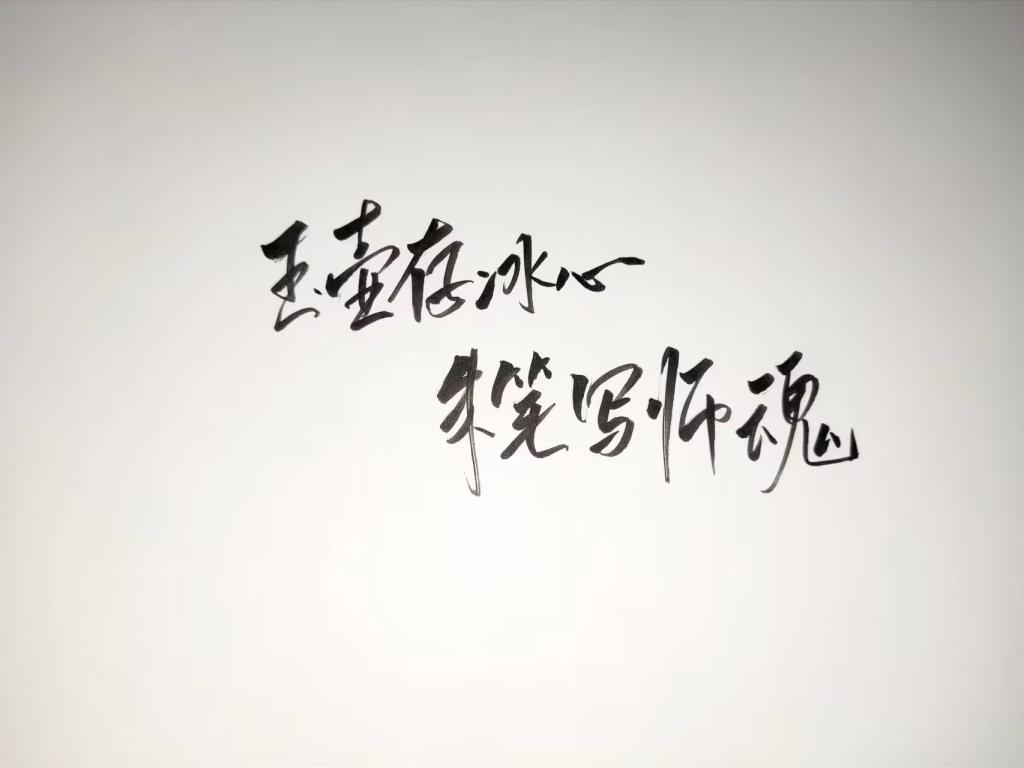 玉壶存冰心
朱笔写师魂